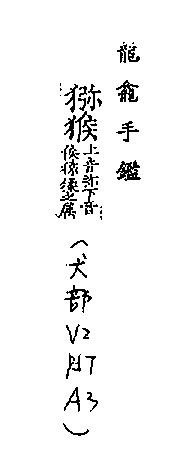 龍龕手鑑
猕猴上音弥下音
侯猕猴之属
(犬部
V2
P17
A3)